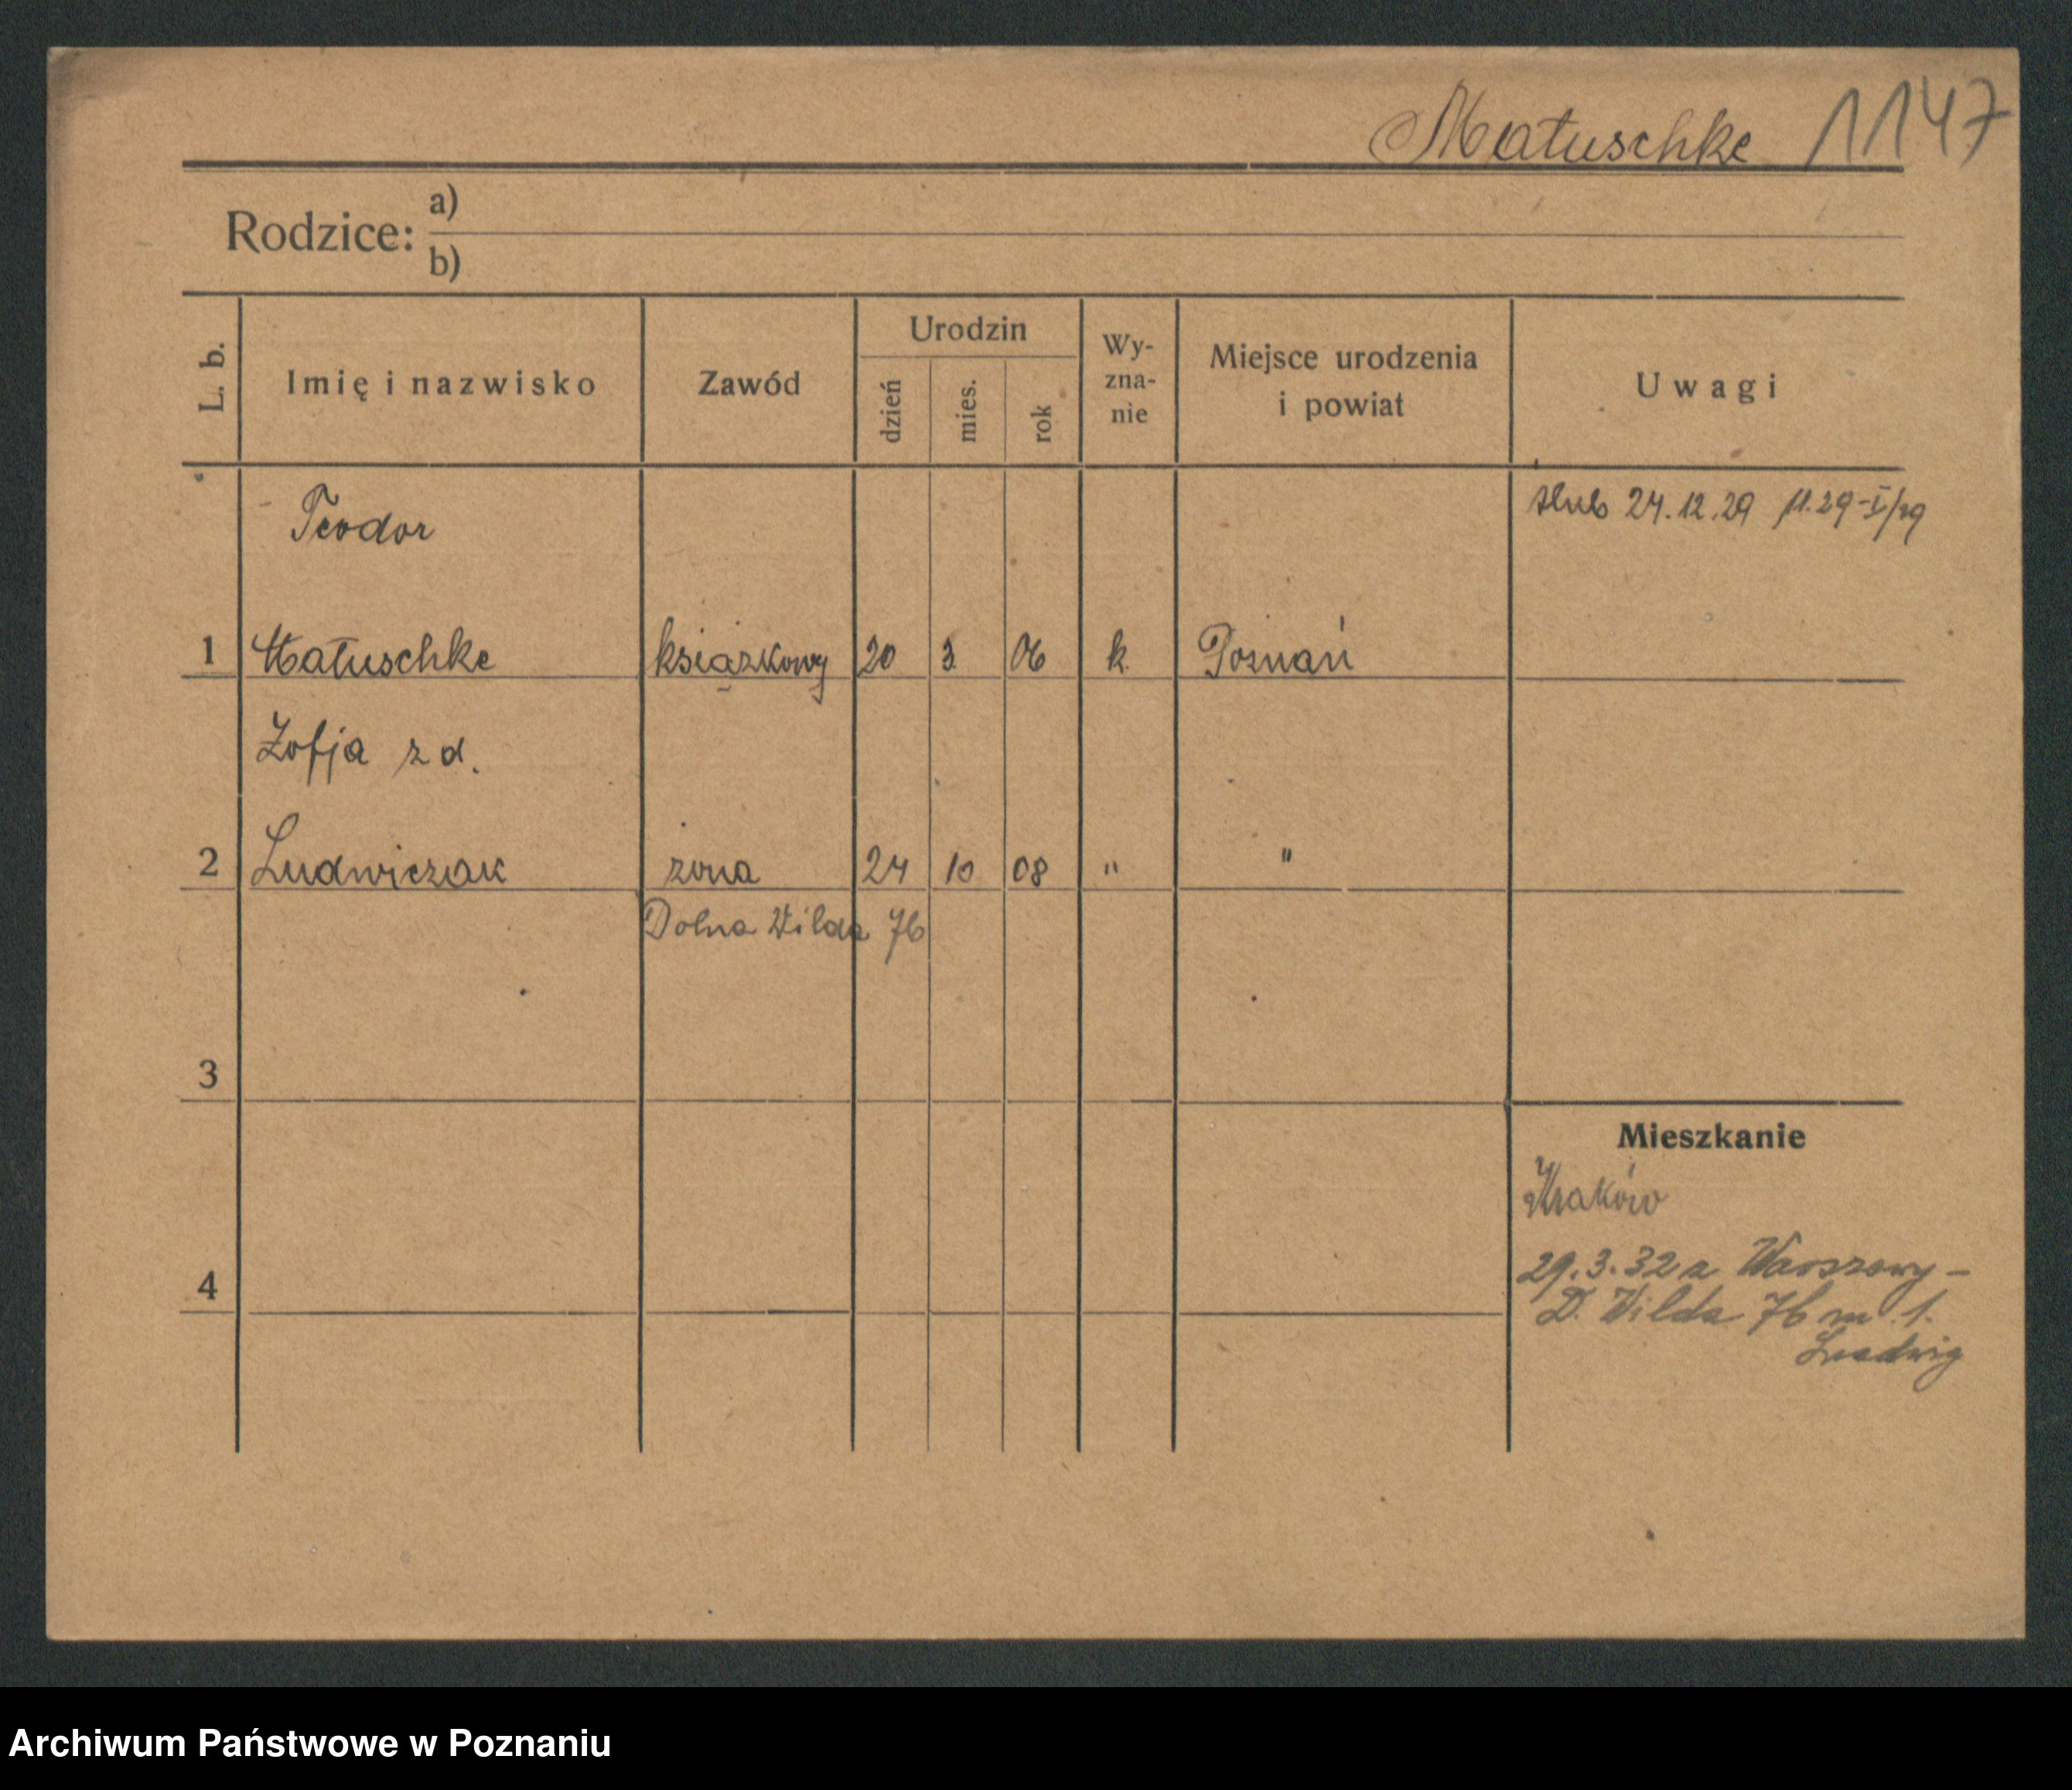 Matuschke 1147
Rodzice: a)
b)
L. b. Imię i nazwisko Zawód Urodzin dzień mies. rok Wy-zna-nie Miejsce urodzenia i powiat Uwagi
Teodor ślub 24.12.29
1 Matuschke książkowy 20 3 06 k. Poznań
Zofja z d.
2 Ludwiczak żona 24 10 08 " "
Dolna Wilda 76
3
Mieszkanie
Kraków
4 29.3.32 z Warszawy -
D. Wilda 76 m. 1.
Ludwig
Archiwum Państwowe w Poznaniu